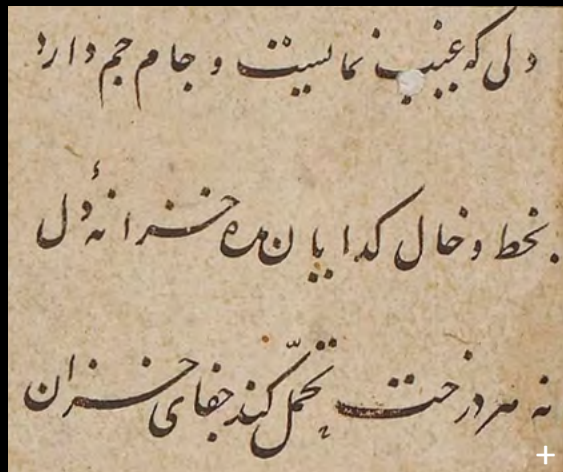 دلی که غیب نمایست و جام جم دارد
بخط و خال کدایان مده خزانهٔ دل
نه هر درخت تحمّل کند جفای خزان